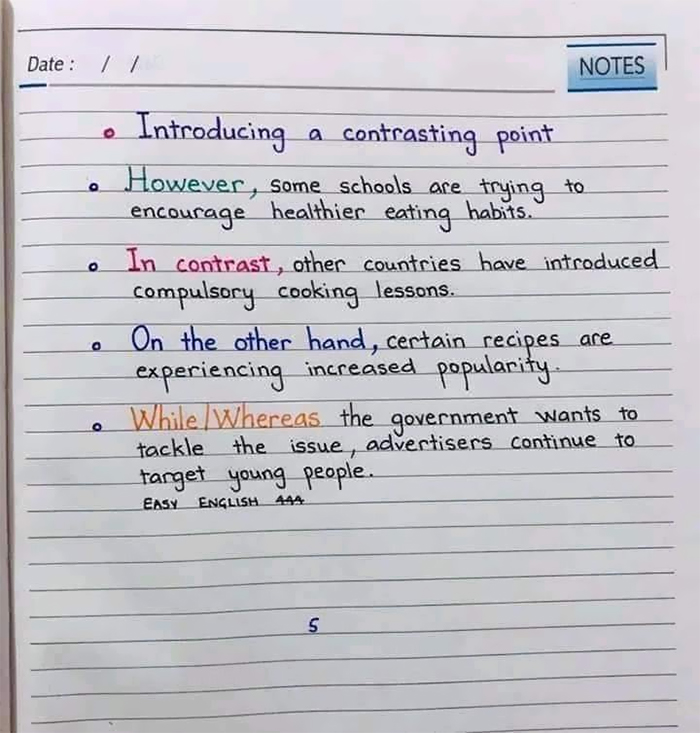 Date : / /
NOTES
Introducing a contrasting point
However, some schools are trying to
encourage healthier eating habits.
In contrast, other countries have introduced
compulsory cooking lessons.
On the other hand, certain recipes are
experiencing increased popularity.
While/Whereas the government wants to
tackle the issue, advertisers continue to
target young people.
EASY ENGLISH 444
5